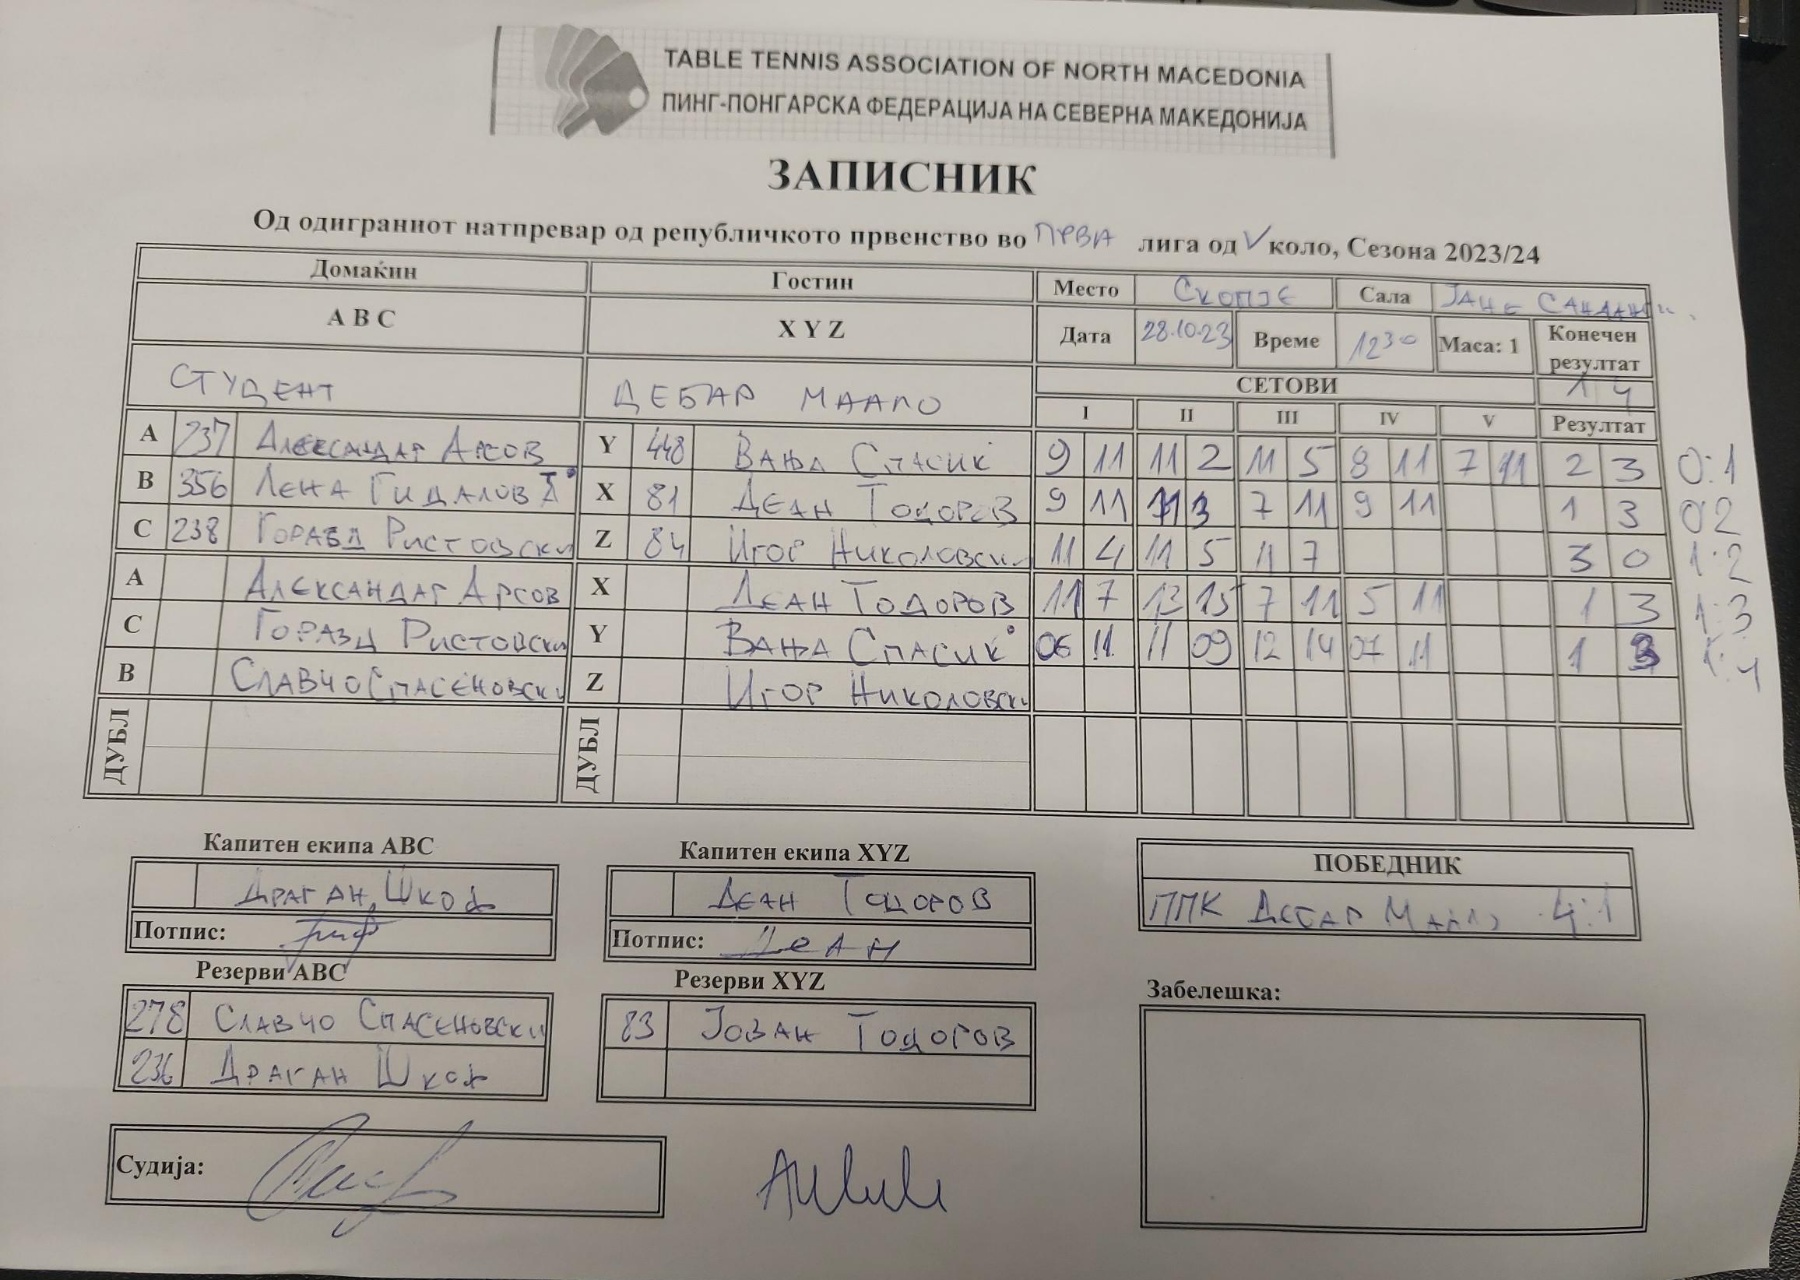 TABLE TENNIS ASSOCIATION OF NORTH MACEDONIA
ПИНГ-ПОНГАРСКА ФЕДЕРАЦИЈА НА СЕВЕРНА МАКЕДОНИЈА
ЗАПИСНИК
Од одиграниот натпревар од републичкото првенство во ПРВА лига од V коло, Сезона 2023/24
Домаќин Гостин Место СКОПЈЕ Сала ЈАНЕ
A B C X Y Z Дата 28.10.23 Време 1230 Маса: 1 Конечен резултат
СТУДЕНТ ДЕБАР МААЛО СЕТОВИ 1 4
I II III IV V Резултат
A 237 АЛЕКСАНДАР АРСОВ Y 448 ВАЊА СПАСИЌ 9 11 11 2 11 5 8 11 7 11 2 3 0:1
B 356 ЛЕНА X 81 ДЕАН ТОДОРОВ 9 11 11 3 7 11 9 11 1 3 0 2
C 238 ГОРАЗД РИСТОВСКИ Z 84 ИГОР НИКОЛОВСКИ 11 4 11 5 11 7 3 0 1:2
A АЛЕКСАНДАР АРСОВ X ДЕАН ТОДОРОВ 11 7 13 15 7 11 5 11 1 3 1:3
C ГОРАЗД РИСТОВСКИ Y ВАЊА СПАСИЌ 06 11 11 09 12 14 07 11 1 3 1:4
B СЛАВЧО СПАСЕНОВСКИ Z ИГОР НИКОЛОВСКИ
ДУБЛ ДУБЛ
Капитен екипа ABC Капитен екипа XYZ ПОБЕДНИК
ДРАГАН ШКОЈ ДЕАН ТОДОРОВ ППК ДЕБАР МААЛО 4:1
Потпис: Потпис: ДЕАН
Резерви ABC Резерви XYZ Забелешка:
278 СЛАВЧО СПАСЕНОВСКИ 83 ЈОВАН ТОДОРОВ
236 ДРАГАН ШКОЈ
Судија: